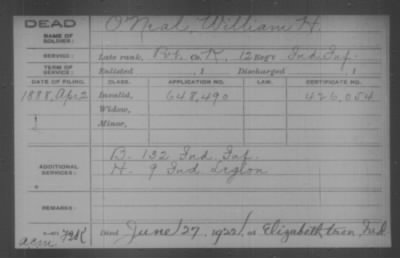 DEAD
NAME OF SOLDIER: O'Neal, William H.
SERVICE: Late rank, Pvt. Co. K, 12 Reg't Ind. Inf.
TERM OF SERVICE: Enlisted 1 Discharged 1
DATE OF FILING. CLASS. APPLICATION NO. LAW. CERTIFICATE NO.
1888, Apr 2 Invalid, 648,490 426,054
Widow,
Minor,
B. 132 Ind. Inf.
ADDITIONAL SERVICES: H. 9 Ind. Leglon
REMARKS:
Died June 27, 1922, at Elizabethtown, Ind.